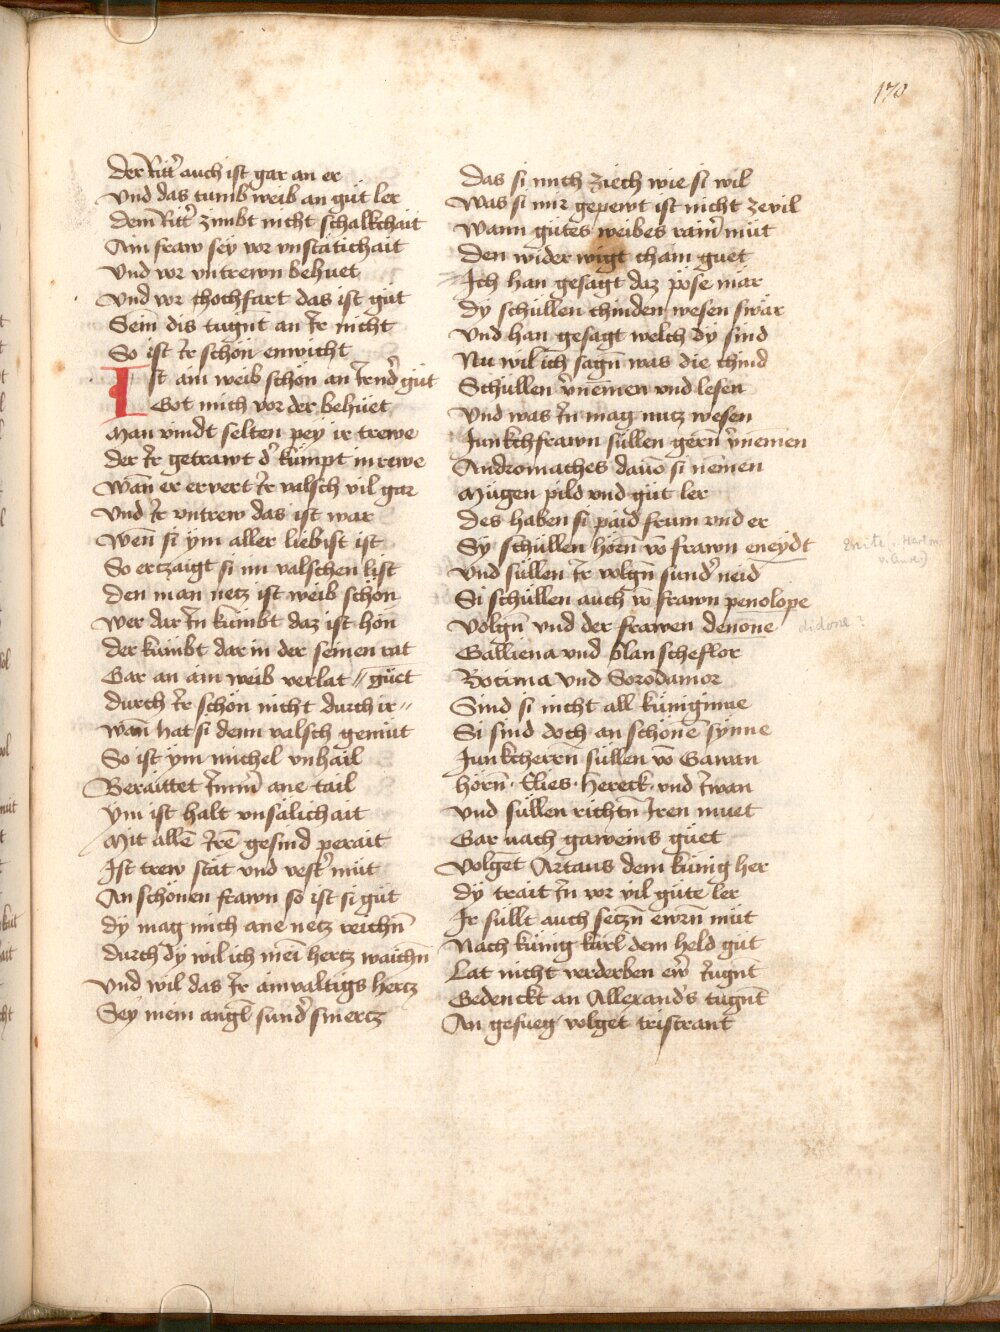 170
der Ritt' auch ist gar an er
Vnd das tumb weib an gůt ler
dem Ritt' zimbt nicht schalkchait
Ain fraw sey vor vnstätichait
Vnd vor vntrewn behuet
Vnd vor chochfart das ist gůt
Sein dis tugnt an Ir nicht
So ist Ir schön enwicht
Ist ain weib schön an Irnd' gůt
Got mich vor der behüet
Man vindt selten pey ir trewe
der Ir getrawt d' kümpt in rewe
Wān er ervert Ir valsch vil gar
Vnd Ir vntrew das ist war
Wen si ym aller liebist ist
So erczaigt si im valschen list
den man netz ist weib schön
Wer dar In kümbt daz ist hön
der kümbt dar in der seinen rat
Gar an ain weib verlat // güet
durch Ir schön nicht durch ir //
Wān hat si denn valsch gemüt
So ist ym michel vnhail
Beraittet ane tail
Ym ist halt vnsälichait
Mit allē Irē gesind perait
Ist trew stät vnd vest' müt
An schönen frawn so ist si gůt
dy mag mich ane netz reichn̄
durch dy wil ich mein hertz waichn
Vnd wil das Ir ainvaltigs hertz
Sey mein angl sund' smertz
Das si mich ziech wie si wil
Was si mir gepewt ist nicht ze vil
Wann gůtes weibes rain' müt
Den wider wigt chain guet
Ich han gesagt daz pöse mär
dy schüllen chinden wesen swär
Vnd han gesagt welch dy sind
Nu wil ich sagn was die chind
Schüllen v'nemen vnd lesen
Vnd was In mag nutz wesen
Junkchfrawn süllen gern v'nemen
Andromaches dauō si nemen
Mügen pild vnd gůt ler
Des haben si paid frum vnd er
Sy schüllen hörn vō frawn eneydt
Vnd süllen Ir volgn sund' neid
Si schüllen auch vō frawn penolope
Volgn vnd der frawen denone
didone?
Galliena vnd blanscheflor
Botima vnd Sorodamor
Sind si nicht all küniginne
Si sind doch an schönē synne
Junkcherrn süllen vō Gawan
hörn · Clies · Hereck · vnd Iwan
Vnd süllen richtn Iren muet
Gar nach gaweins güet
Volget Artaus dem künig her
dy trait In vor vil gůte ler
Ir süllt auch setzn ewrn müt
Nach künig karl dem held gůt
Lat nicht verderben ewr Iugnt
Gedenckt an Allexand's tugnt
An gefueg volget tristrant